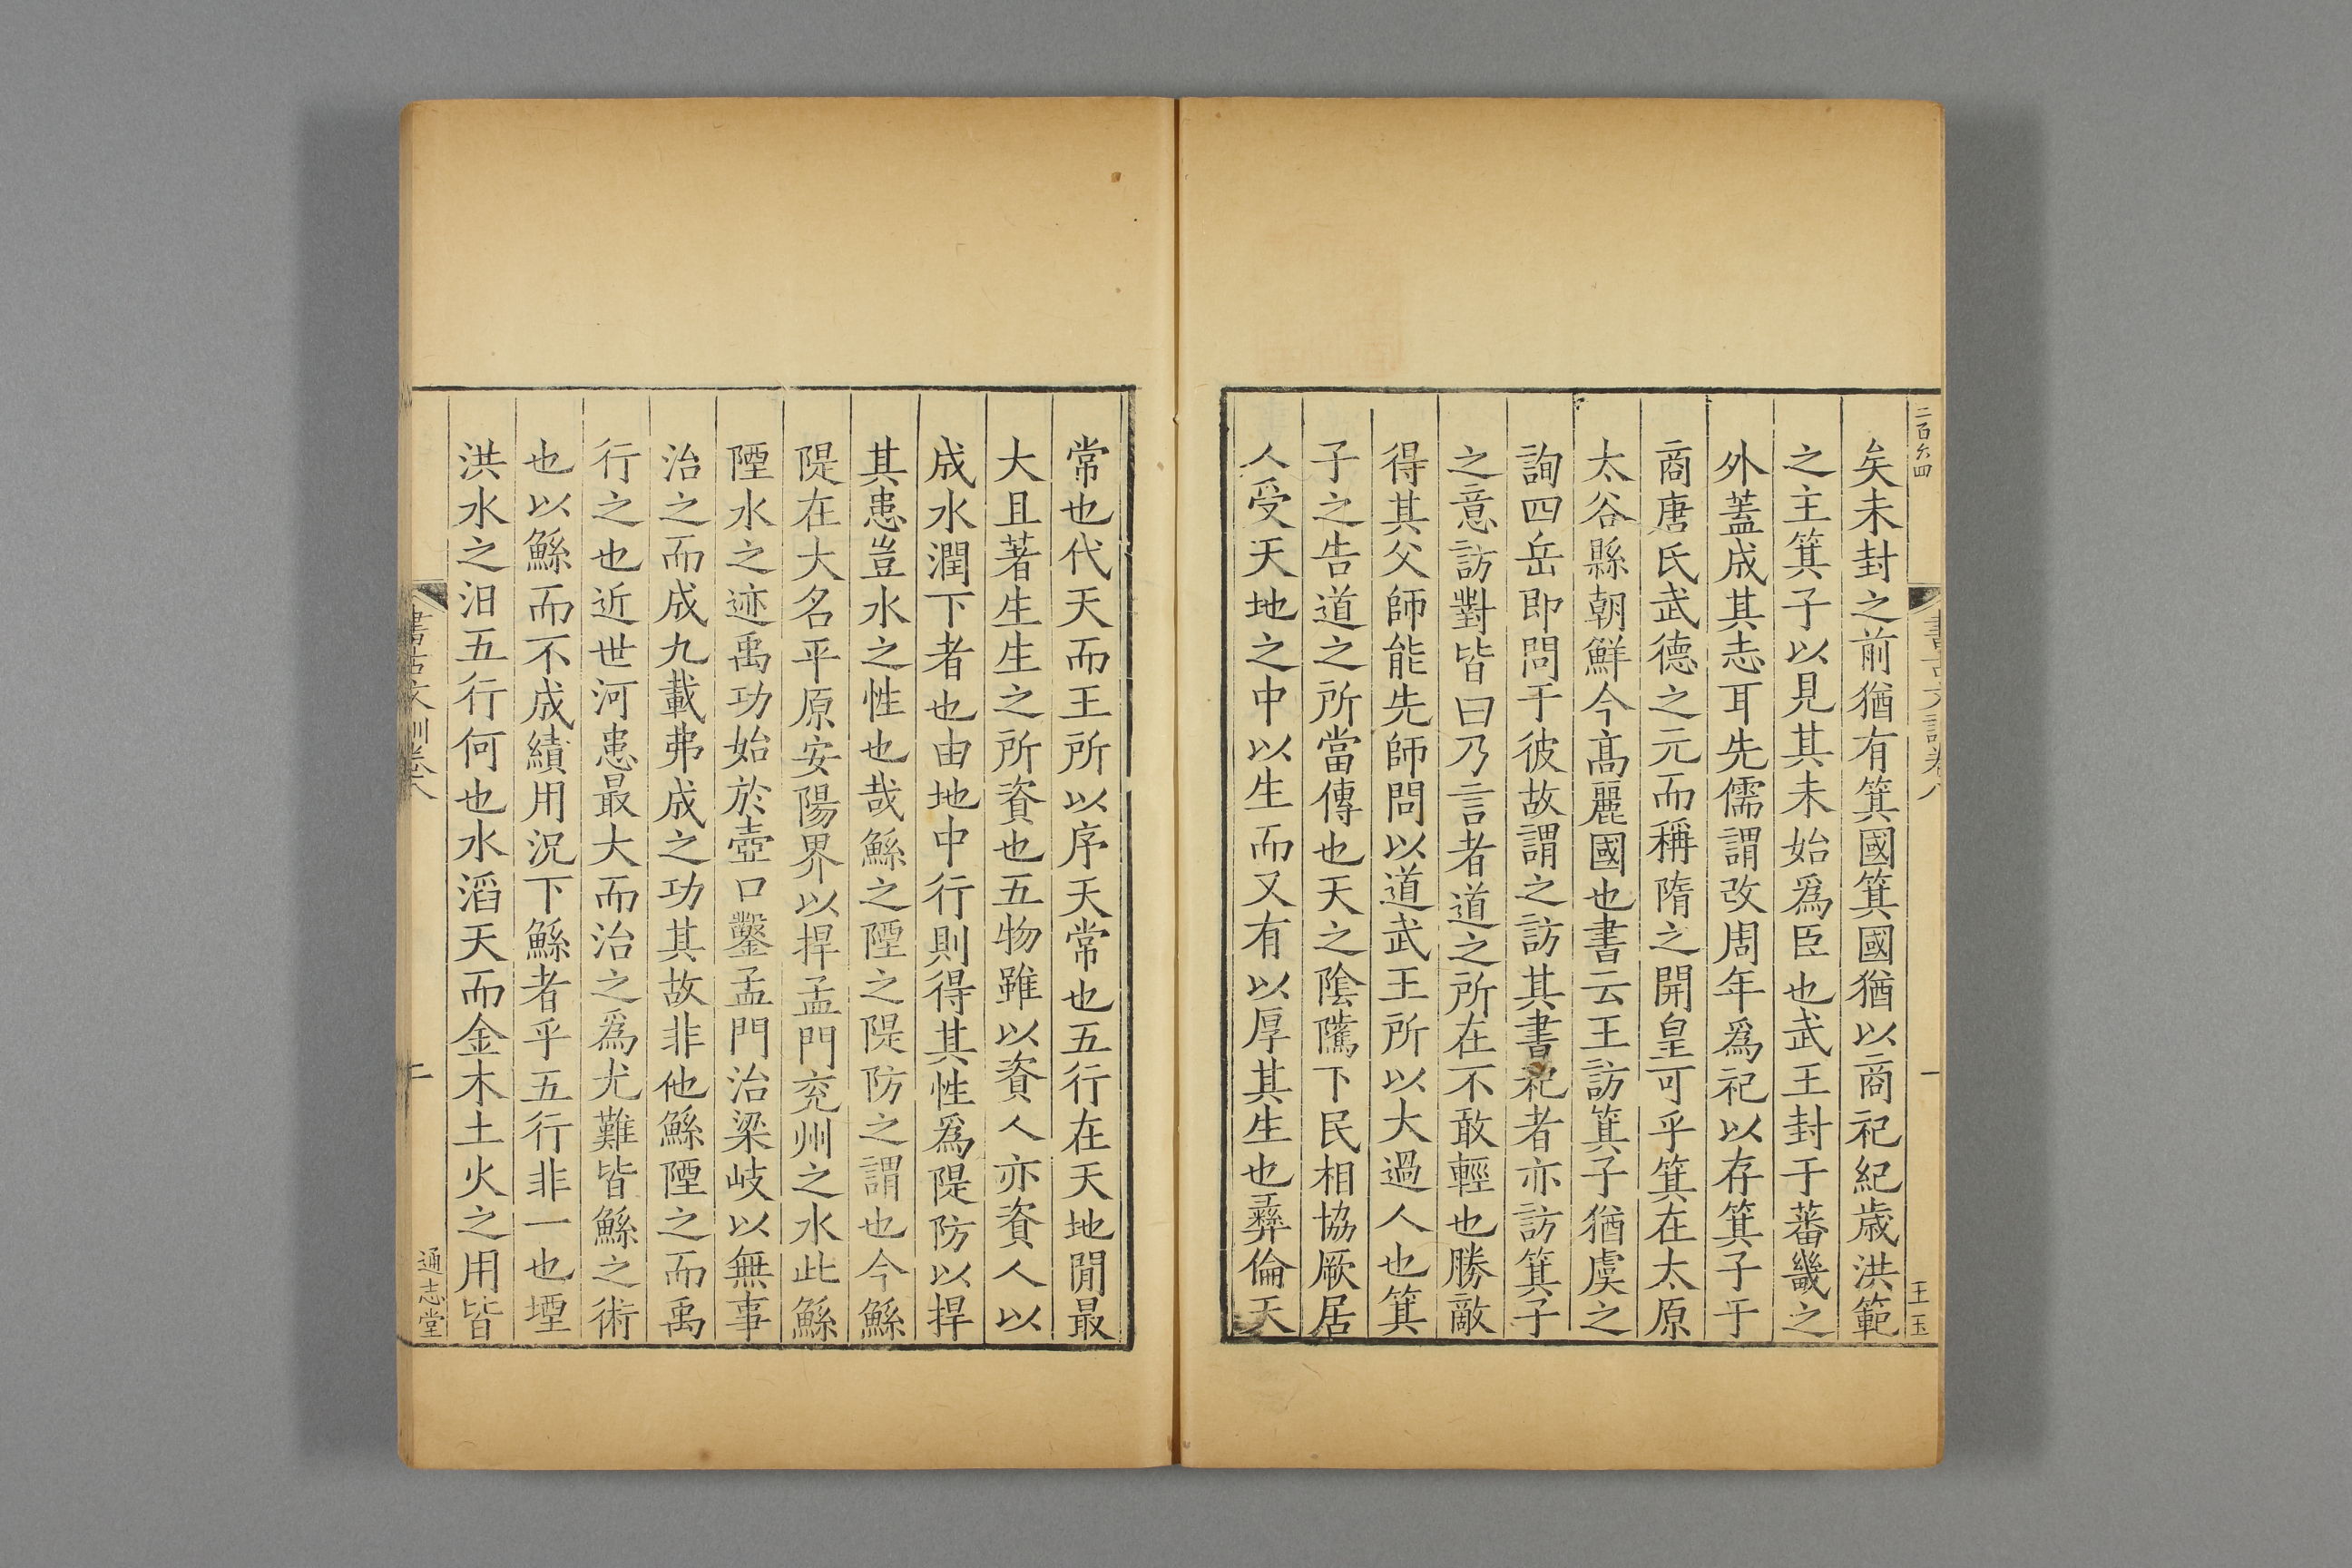 二百六四
書古文訓卷八
一
王玉
矣未封之前猶有箕國箕國猶以商祀紀歲洪範
之主箕子以見其未始爲臣也武王封于蕃畿之
外蓋成其志耳先儒謂改周年爲祀以存箕子于
商唐氏武德之元而稱隋之開皇可乎箕在太原
太谷縣朝鮮今高麗國也書云王訪箕子猶虞之
詢四岳即問于彼故謂之訪其書祀者亦訪箕子
之意訪對皆曰乃言者道之所在不敢輕也勝敵
得其父師能先師問以道武王所以大過人也箕
子之告道之所當傳也天之陰隲下民相協厥居
人受天地之中以生而又有以厚其生也彞倫天
常也代天而王所以序天常也五行在天地閒最
大且著生生之所資也五物雖以資人亦資人以
成水潤下者也由地中行則得其性爲隄防以捍
其患豈水之性也哉鯀之陻之隄防之謂也今鯀
隄在大名平原安陽界以捍孟門兖州之水此鯀
陻水之迹禹功始於壺口鑿孟門治梁岐以無事
治之而成九載弗成之功其故非他鯀陻之而禹
行之也近世河患最大而治之爲尤難皆鯀之術
也以鯀而不成績用況下鯀者乎五行非一也堙
洪水之汨五行何也水滔天而金木土火之用皆
書古文訓卷八
二
通志堂